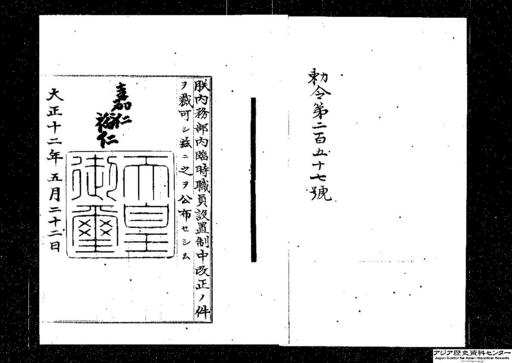 勅令第二百五十七號
朕内務部内臨時職員設置制中改正ノ件
ヲ裁可シ茲ニ之ヲ公布セシム
嘉仁
裕仁
天皇
御璽
大正十二年五月二十二日
アジア歴史資料センター
Japan Center for Asian Historical Records